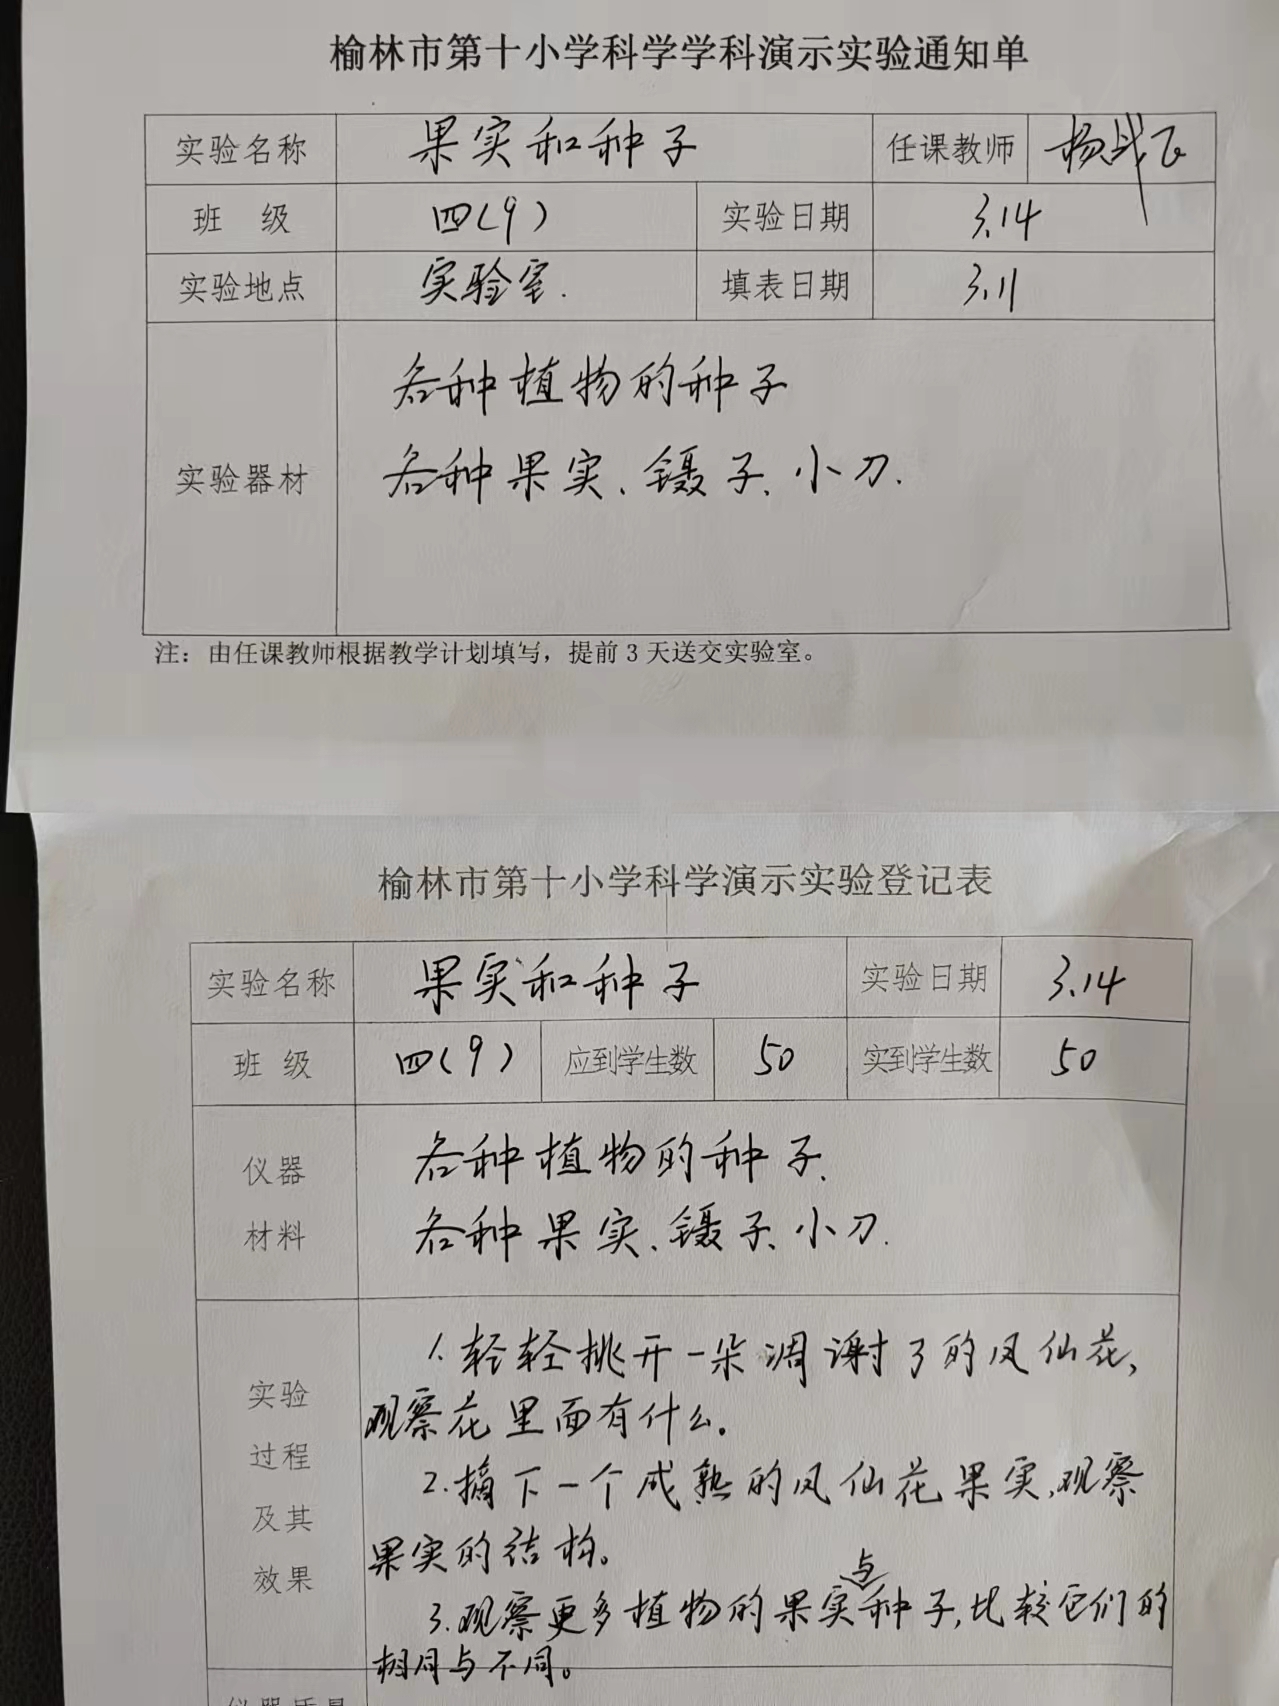 榆林市第十小学科学学科演示实验通知单
实验名称 果实和种子 任课教师
班 级 四(9) 实验日期 3.14
实验地点 实验室. 填表日期 3.11
各种植物的种子
实验器材 各种果实、镊子、小刀.
注：由任课教师根据教学计划填写，提前 3 天送交实验室。
榆林市第十小学科学演示实验登记表
实验名称 果实和种子 实验日期 3.14
班 级 四(9) 应到学生数 50 实到学生数 50
仪器 各种植物的种子、
材料 各种果实、镊子、小刀.
1.轻轻挑开一朵凋谢了的凤仙花,
实验 观察花里面有什么。
过程 2.摘下一个成熟的凤仙花果实,观察
及其 果实的结构。
效果 3.观察更多植物的果实与种子,比较它们的
相同与不同。